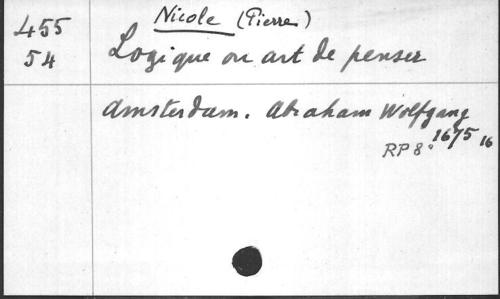 Nicole (Pierre)
455
54
Logique ou art de penser
Amsterdam. Abraham Wolfgang
1675 16
RP 8°